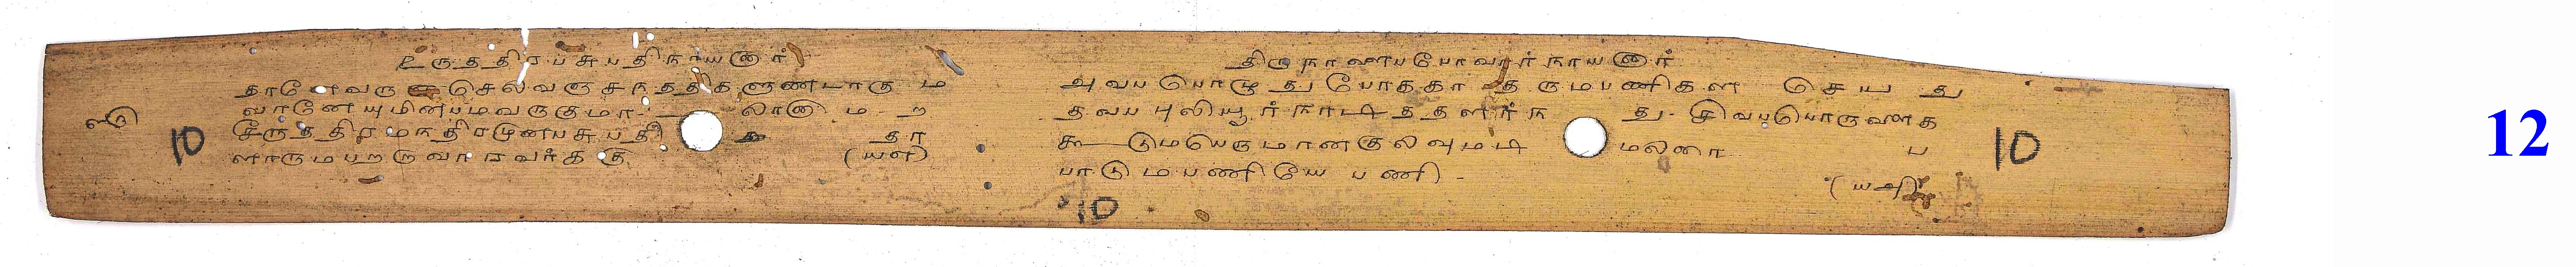 உருத்திரபசுபதிநாயனார்
தானேவரு செல்வஞ்சந்ததிகளுண்டாகும
வானேயுமின்பமவருகுமா லானாமற
சீருத்திரமந்திரமுனபசுபதி தா
ளாருமபறறுவாரவர்க்கு
(யஎ)
௭
10
திருநாளைபபோவார்நாயனார்
அவபபொழுதுபோக்கா தருமபணிகள செயது
தவபபுலியூர்நாடித்தளர்ந து சிவபபொருவளாக
கூடுமபெருமானகுலவுமடி மலரைப
பாடுமபணியேபணி
(யஅ)
10
10
12